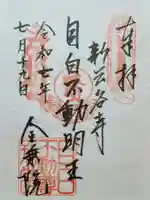 奉拝
新長谷寺
目白不動明王
金乗院
令和七年
七月十九日